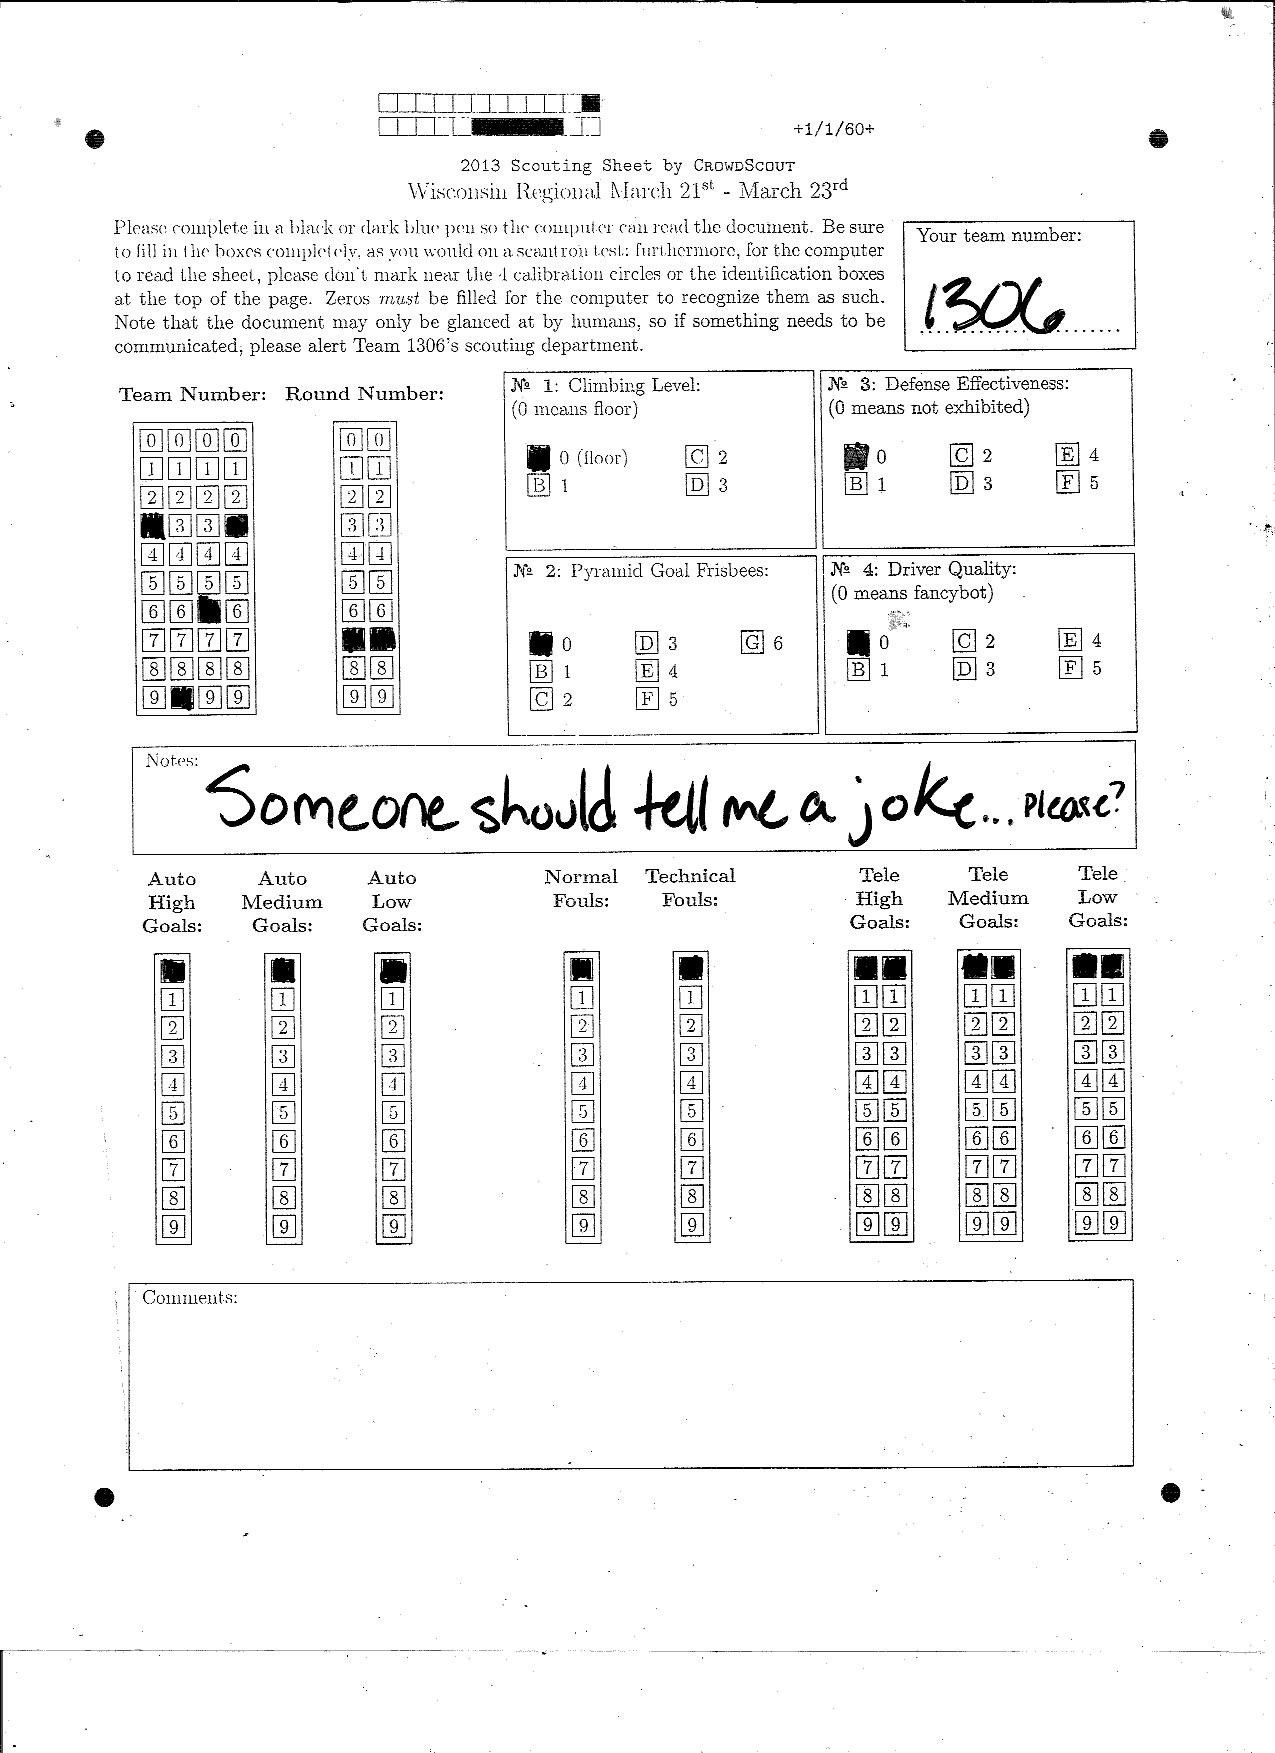 +1/1/60+
2013 Scouting Sheet by CROWDSCOUT
Wisconsin Regional March 21st - March 23rd
Please complete in a black or dark blue pen so the computer can read the document. Be sure
to fill in the boxes completely, as you would on a scantron test; furthermore, for the computer
to read the sheet, please don't mark near the 4 calibration circles or the identification boxes
at the top of the page. Zeros must be filled for the computer to recognize them as such.
Note that the document may only be glanced at by humans, so if something needs to be
communicated, please alert Team 1306's scouting department.
Your team number:
1306
Team Number: Round Number:
0 0 0 0 0 0
1 1 1 1 1 1
2 2 2 2 2 2
3 3 3 3
4 4 4 4 4 4
5 5 5 5 5 5
6 6 6 6 6
7 7 7 7
8 8 8 8 8 8
9 9 9 9 9
№ 1: Climbing Level:
(0 means floor)
0 (floor) C 2
B 1 D 3
№ 3: Defense Effectiveness:
(0 means not exhibited)
0 C 2 E 4
B 1 D 3 F 5
№ 2: Pyramid Goal Frisbees:
0 D 3 G 6
B 1 E 4
C 2 F 5
№ 4: Driver Quality:
(0 means fancybot)
0 C 2 E 4
B 1 D 3 F 5
Notes:
Someone should tell me a joke... Please?
Auto Auto Auto Normal Technical Tele Tele Tele
High Medium Low Fouls: Fouls: High Medium Low
Goals: Goals: Goals: Goals: Goals: Goals:
1 1 1 1 1 1 1 1 1 1 1
2 2 2 2 2 2 2 2 2 2 2
3 3 3 3 3 3 3 3 3 3 3
4 4 4 4 4 4 4 4 4 4 4
5 5 5 5 5 5 5 5 5 5 5
6 6 6 6 6 6 6 6 6 6 6
7 7 7 7 7 7 7 7 7 7 7
8 8 8 8 8 8 8 8 8 8 8
9 9 9 9 9 9 9 9 9 9 9
Comments: